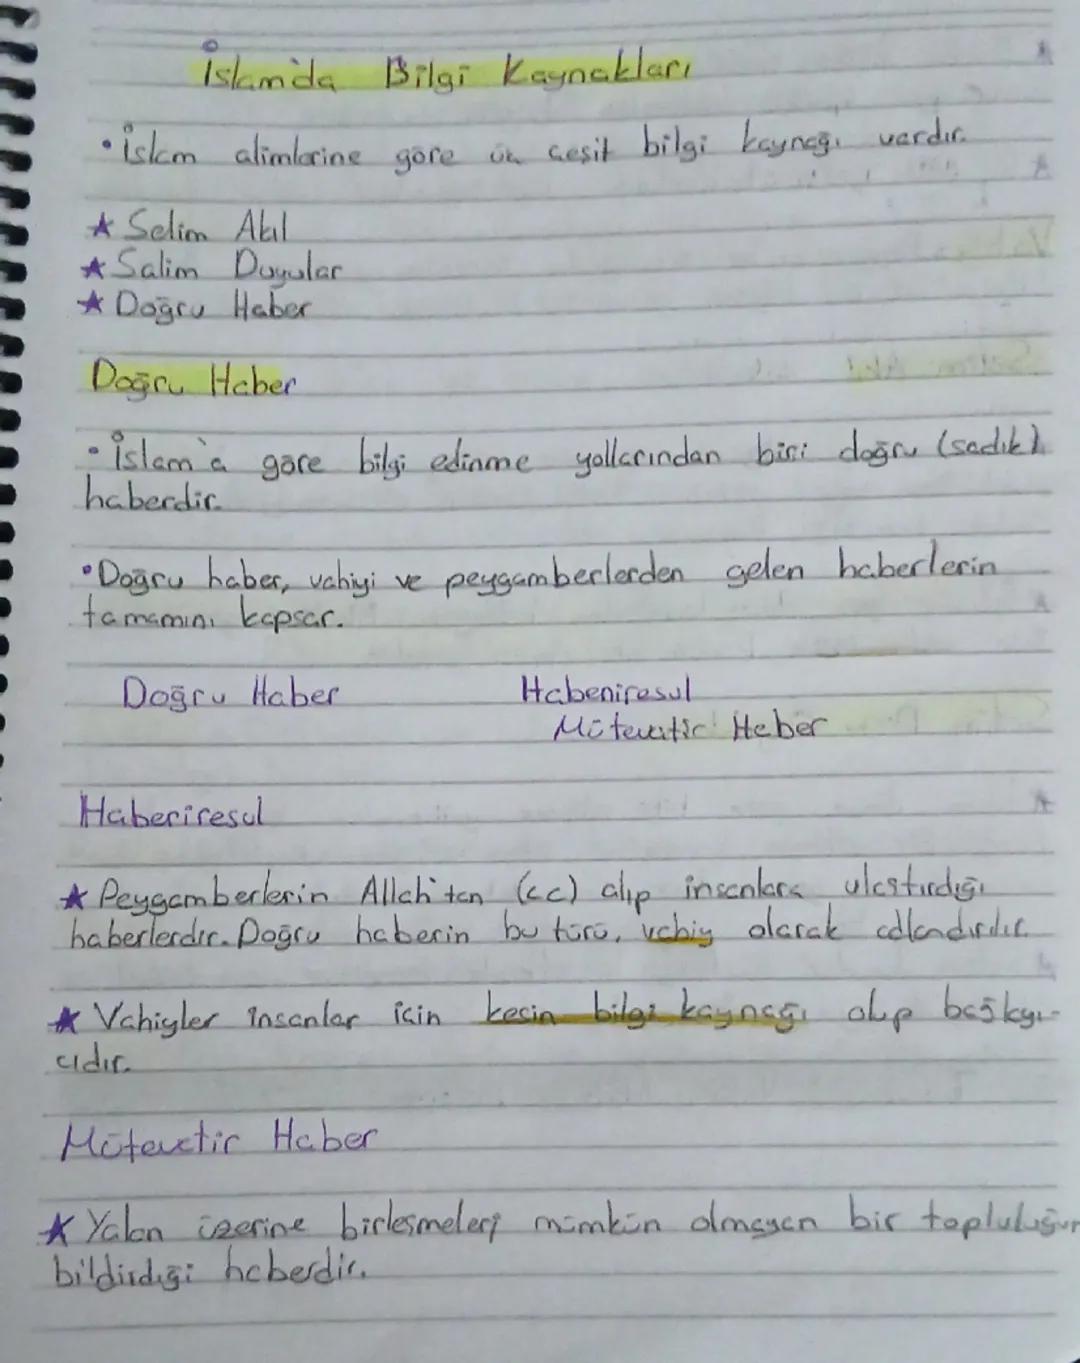 İslam'da Bilgi Kaynakları
• İslam alimlerine göre üç çeşit bilgi kaynağı vardır.
★ Selim Akıl
★ Salim Duyular
★ Doğru Haber
Doğru Haber
• İslam'a göre bilgi edinme yollarından biri doğru (sadık)
haberdir.
• Doğru haber, vahiyi ve peygamberlerden gelen haberlerin
tamamını kapsar.
Doğru Haber Haberiresul
Mütevatir Haber
Haberiresul
★ Peygamberlerin Allah'tan (cc) alıp insanlara ulaştırdığı
haberlerdir. Doğru haberin bu türü, vahiy olarak adlandırılır.
★ Vahiyler insanlar için kesin bilgi kaynağı olup bağlayı-
cıdır.
Mütevatir Haber
★ Yalan üzerine birleşmeleri mümkün olmayan bir topluluğun
bildirdiği haberdir.